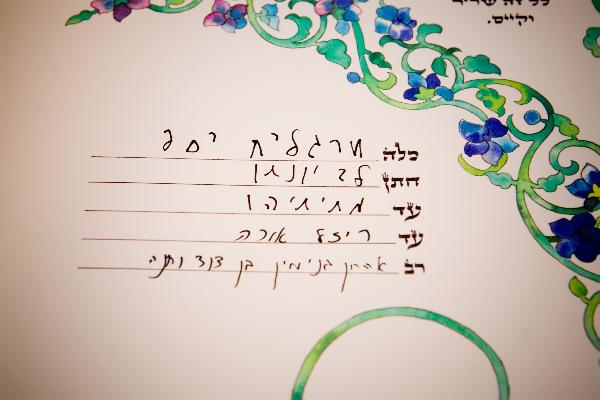 כל זה שריר
וקיים.
כלה מרגלית יסף
חתן לב יונתן
עד מתיתיהו
עד ריזל אורה
רב אהרון בנימין בן דוד וחיה